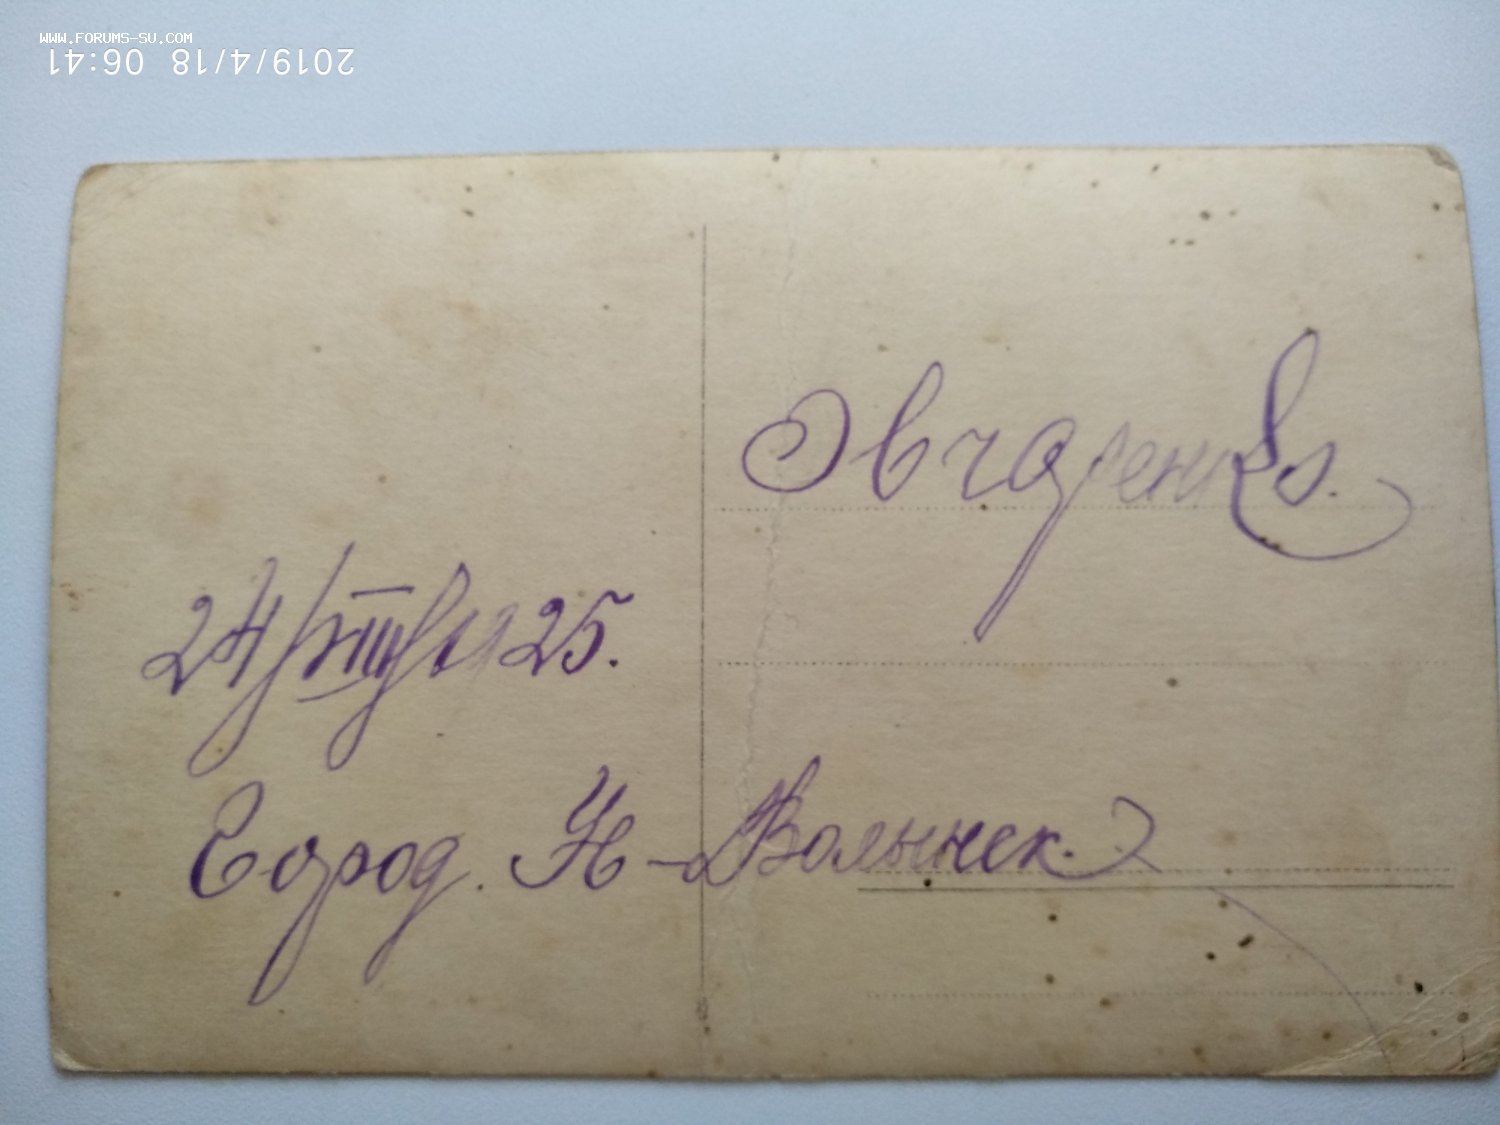 WWW.FORUMS-SU.COM
2019/4/18 06:41
Овчаренко.
24/VIII 1925.
Город. Н-Волынск.